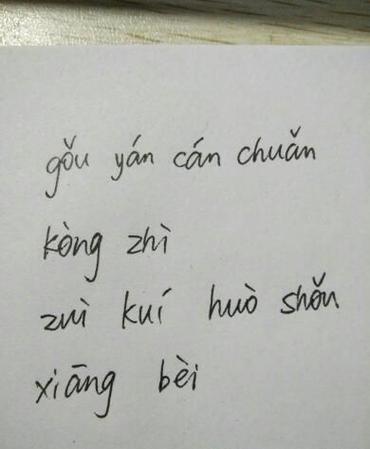 gǒu yán cán chuǎn
kòng zhì
zuì kuí huò shǒu
xiāng bèi